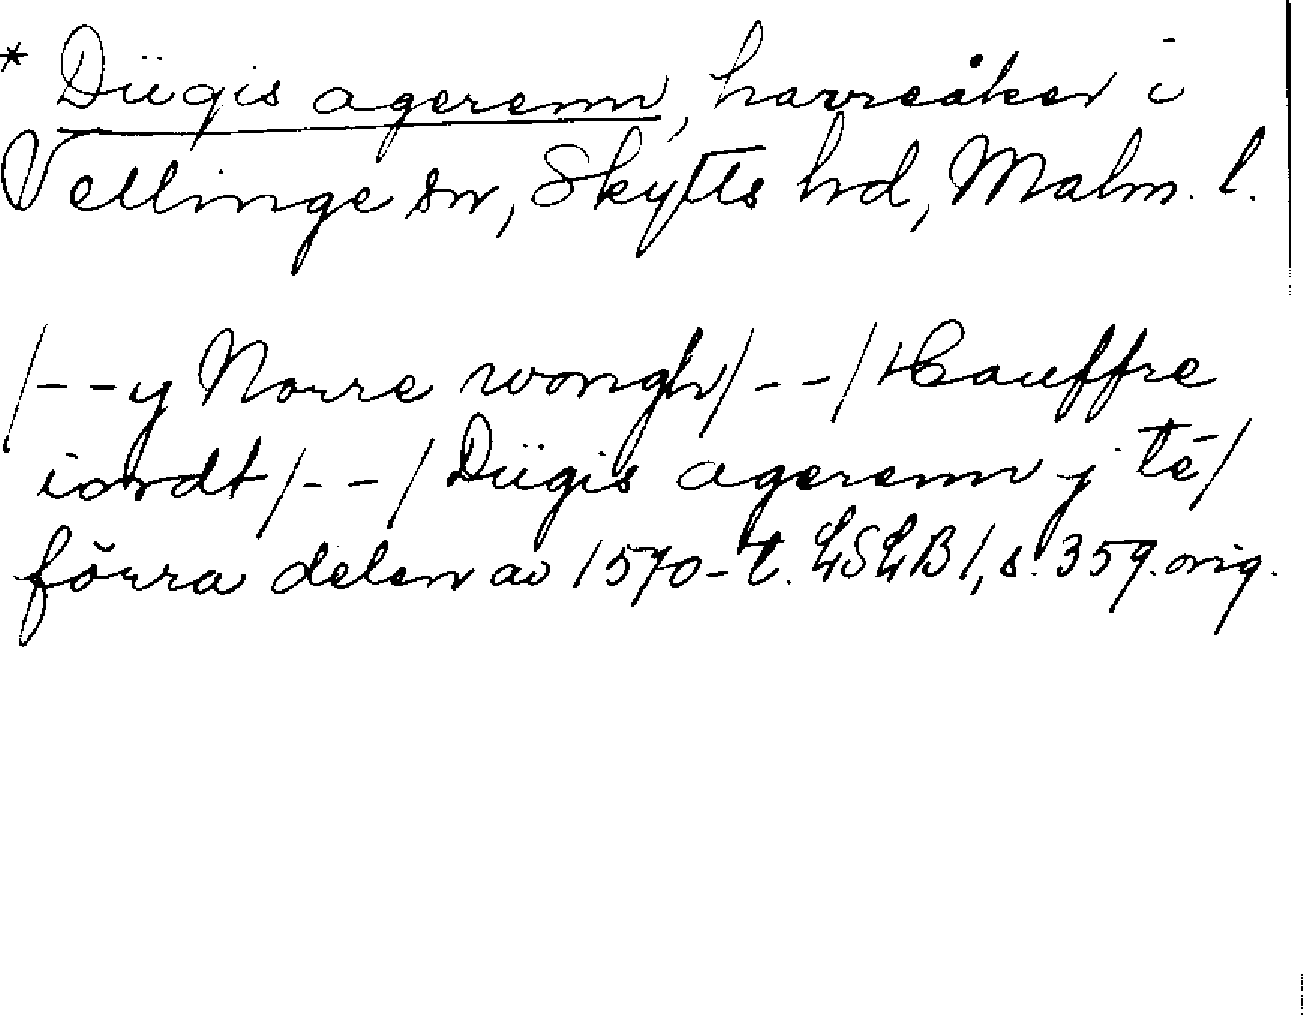 * Diigis agerenn, havreåker i
Vellinge sn, Skytts hd, Malm. l.
/--y Norre wongh/--/Hauffre
iordt/--/Diigis agerenn j té/
förra delen av 1570-t. LSLB 1, s. 359. orig.